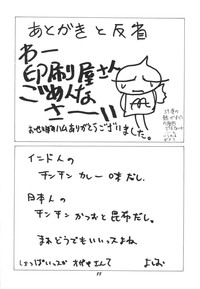 あとがきと反省
わー
印刷屋さん
ごめんな
さーい
お世話様ハムありがとうございました。
インド人の
チンチン カレー味だし.
日本人の
チンチン かつおと昆布だし.
まぁどうでもいいっスよね.
しょっぱいっスか オゲヤさんて
よしお